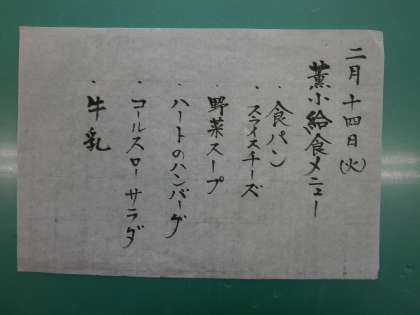 二月十四日(火)
薫小給食メニュー
・食パン
・スライスチーズ
・野菜スープ
・ハートのハンバーグ
・コールスローサラダ
・牛乳